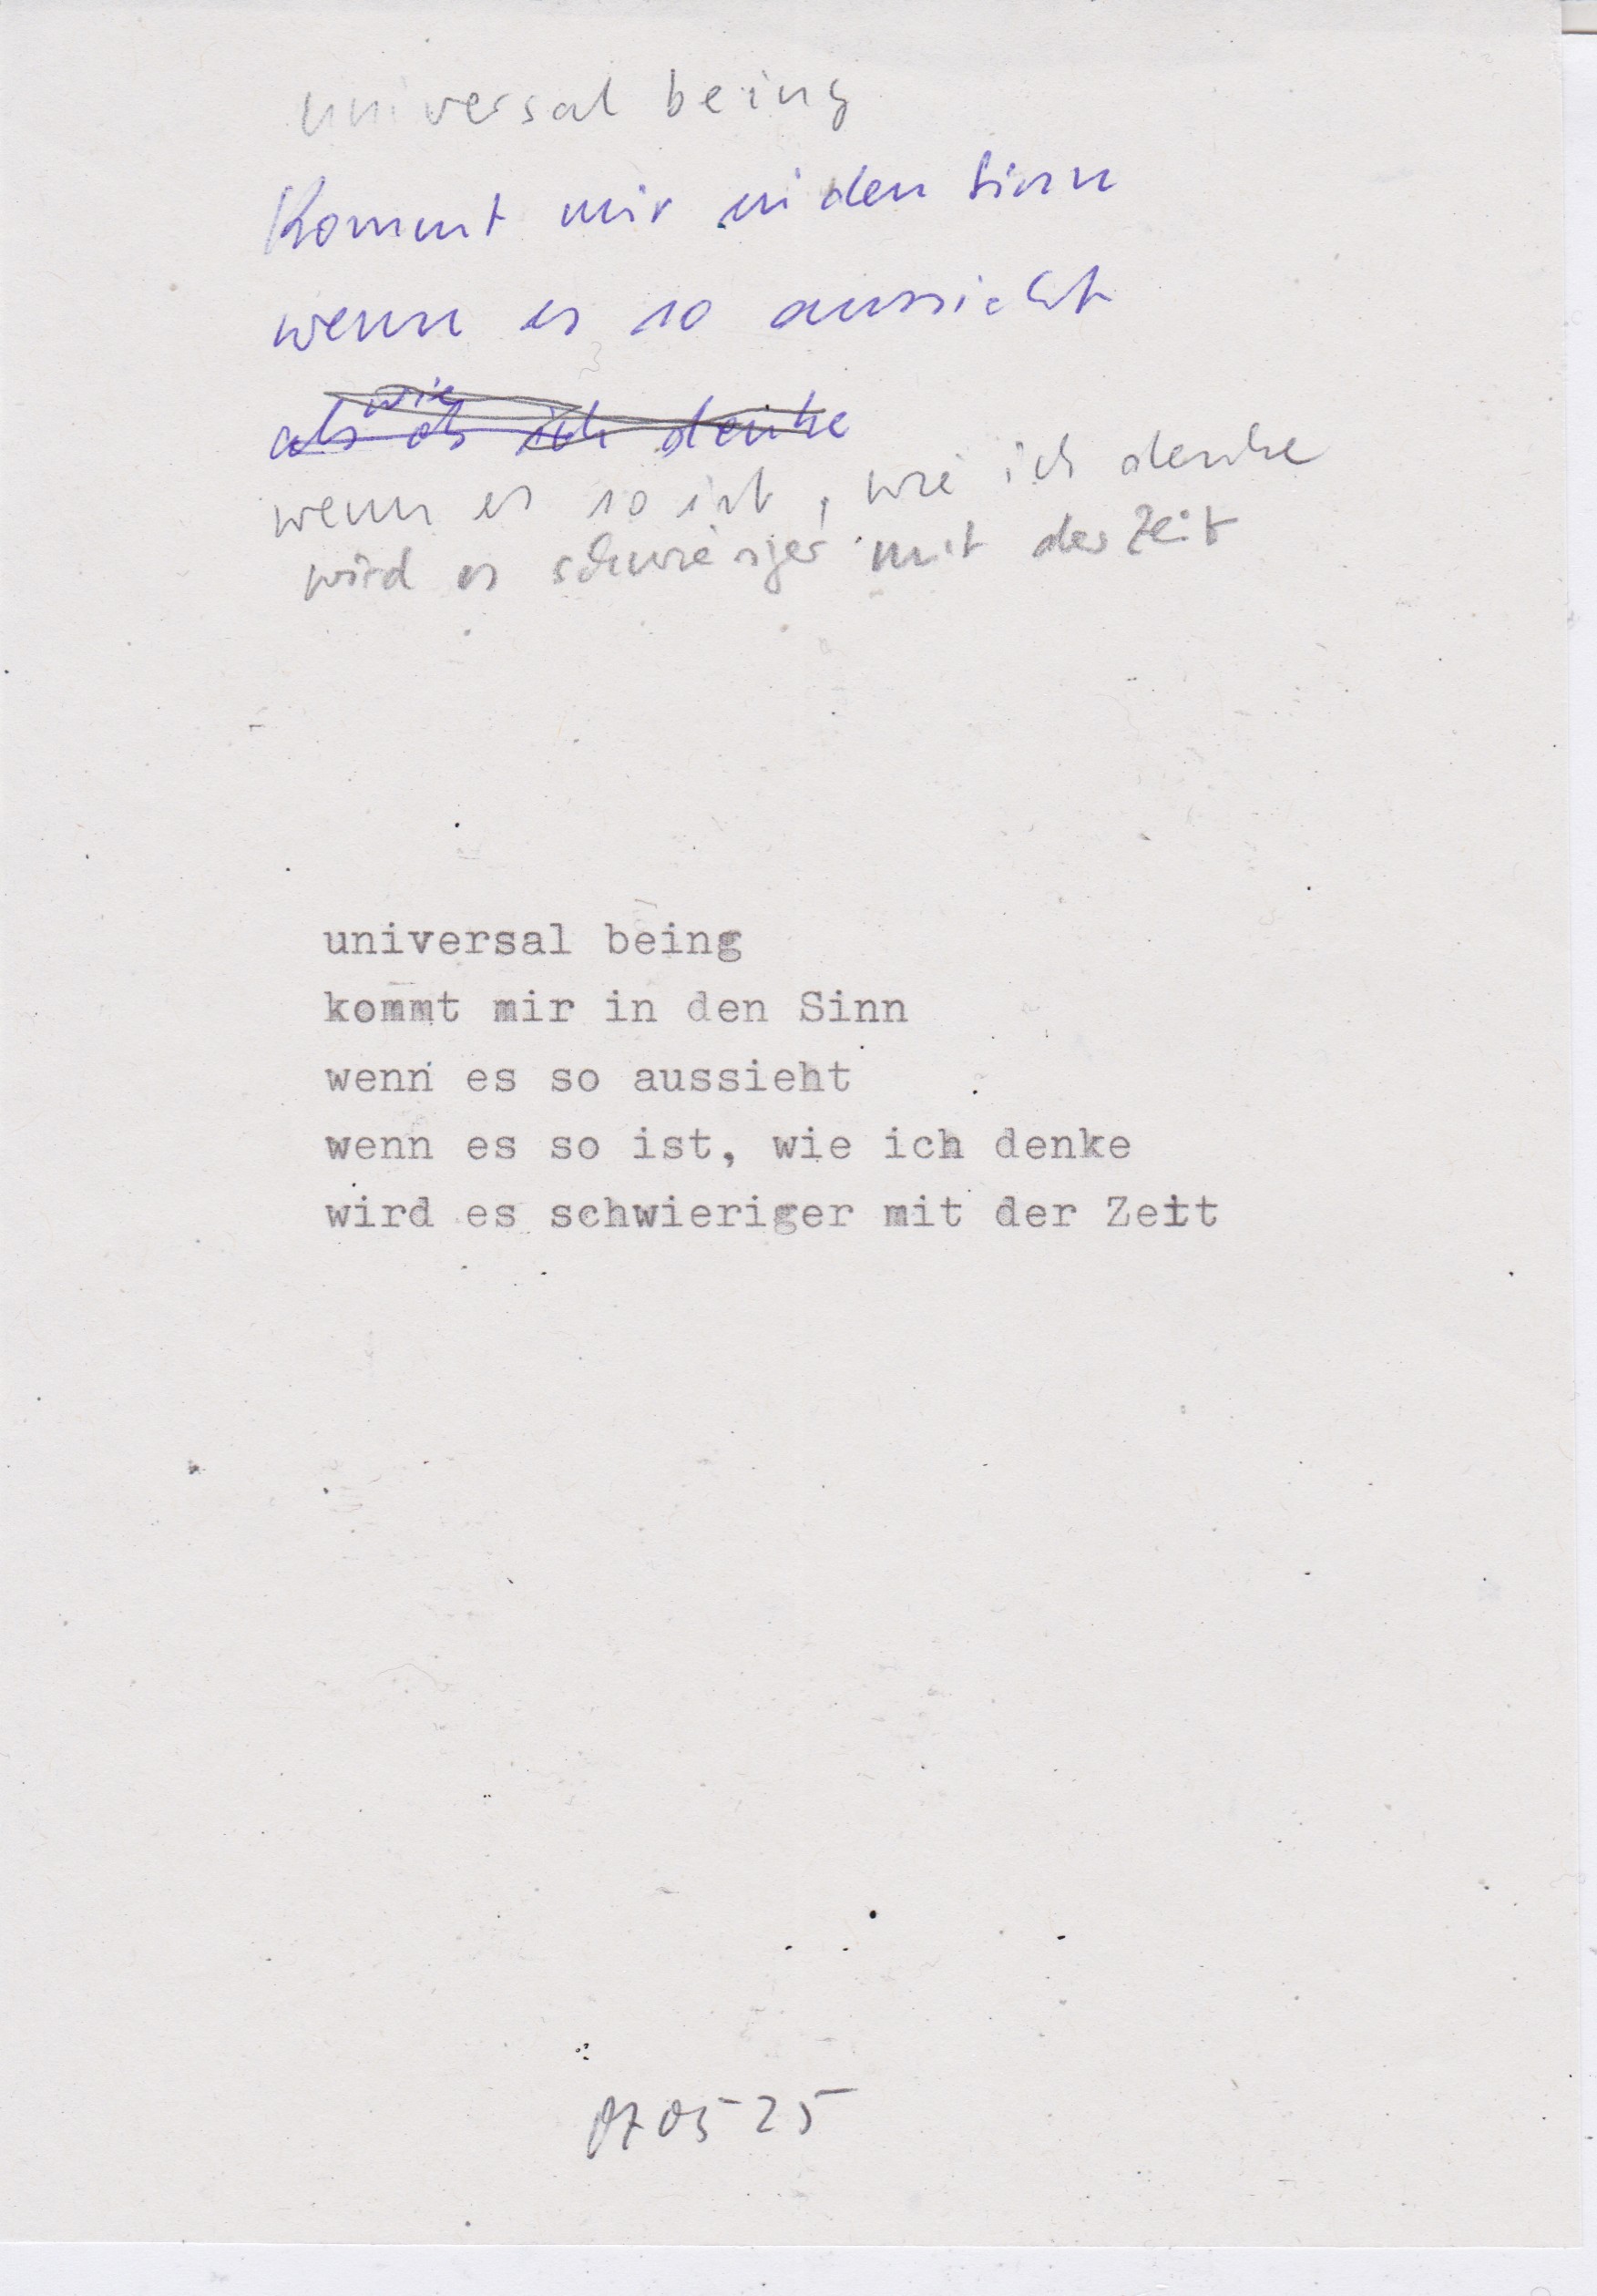 universal being
Kommt mir in den Sinn
wenn es so aussieht
wie
als ob ich denke
wenn es so ist, wie ich denke
wird es schwieriger mit der Zeit
universal being
kommt mir in den Sinn
wenn es so aussieht
wenn es so ist, wie ich denke
wird es schwieriger mit der Zeit
07 05 25